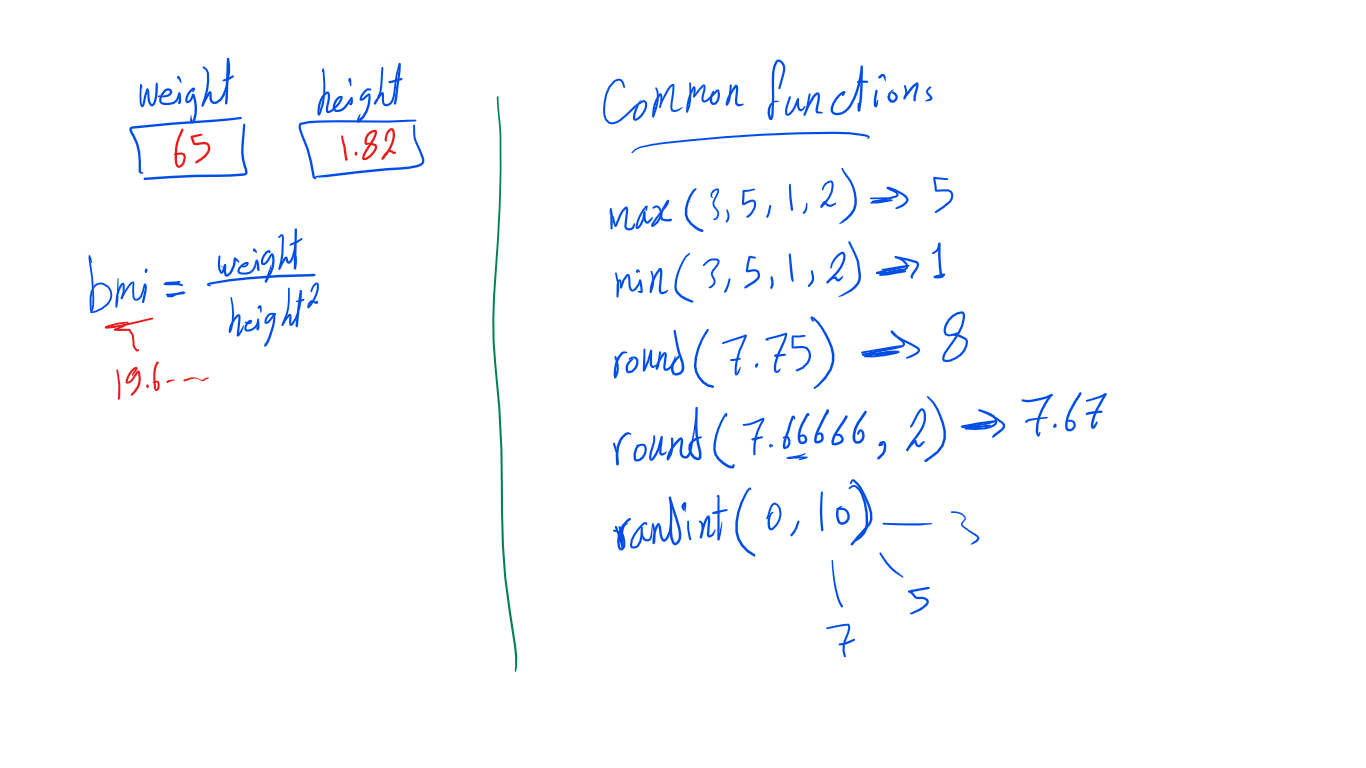 weight height
65 1.82
bmi = weight
height²
19.6---
Common functions
max(3, 5, 1, 2) → 5
min(3, 5, 1, 2) → 1
round(7.75) → 8
round(7.66666, 2) → 7.67
randint(0, 10) — 3
5
7